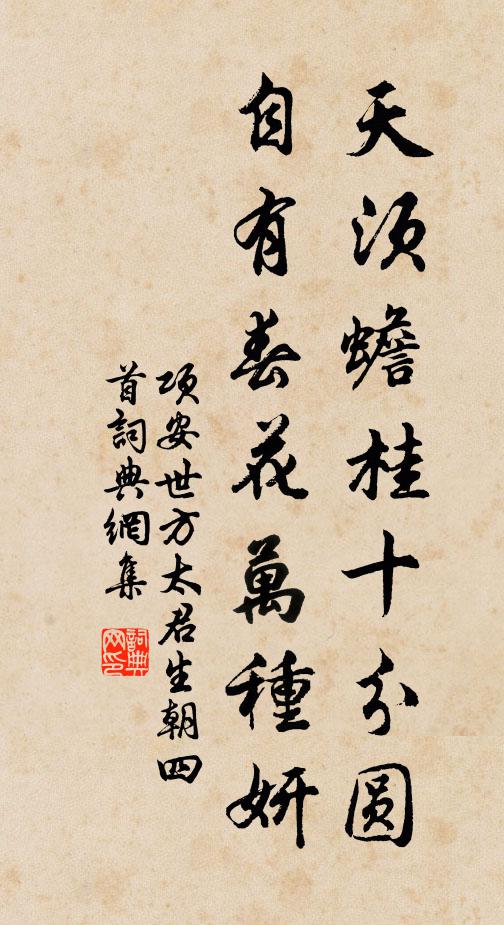 天须蟾桂十分圆
自有春花萬種妍
项安世方太君生朝四
首詞典網集
詞典网印